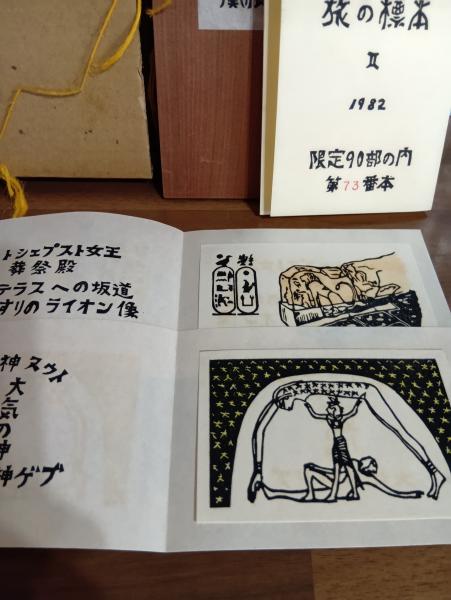 旅の標本
II
1982
限定90部の内
第73番本
トシェプスト女王
葬祭殿
テラスへの坂道
すりのライオン像
神ヌウイ
大
気
の
神
神ゲブ